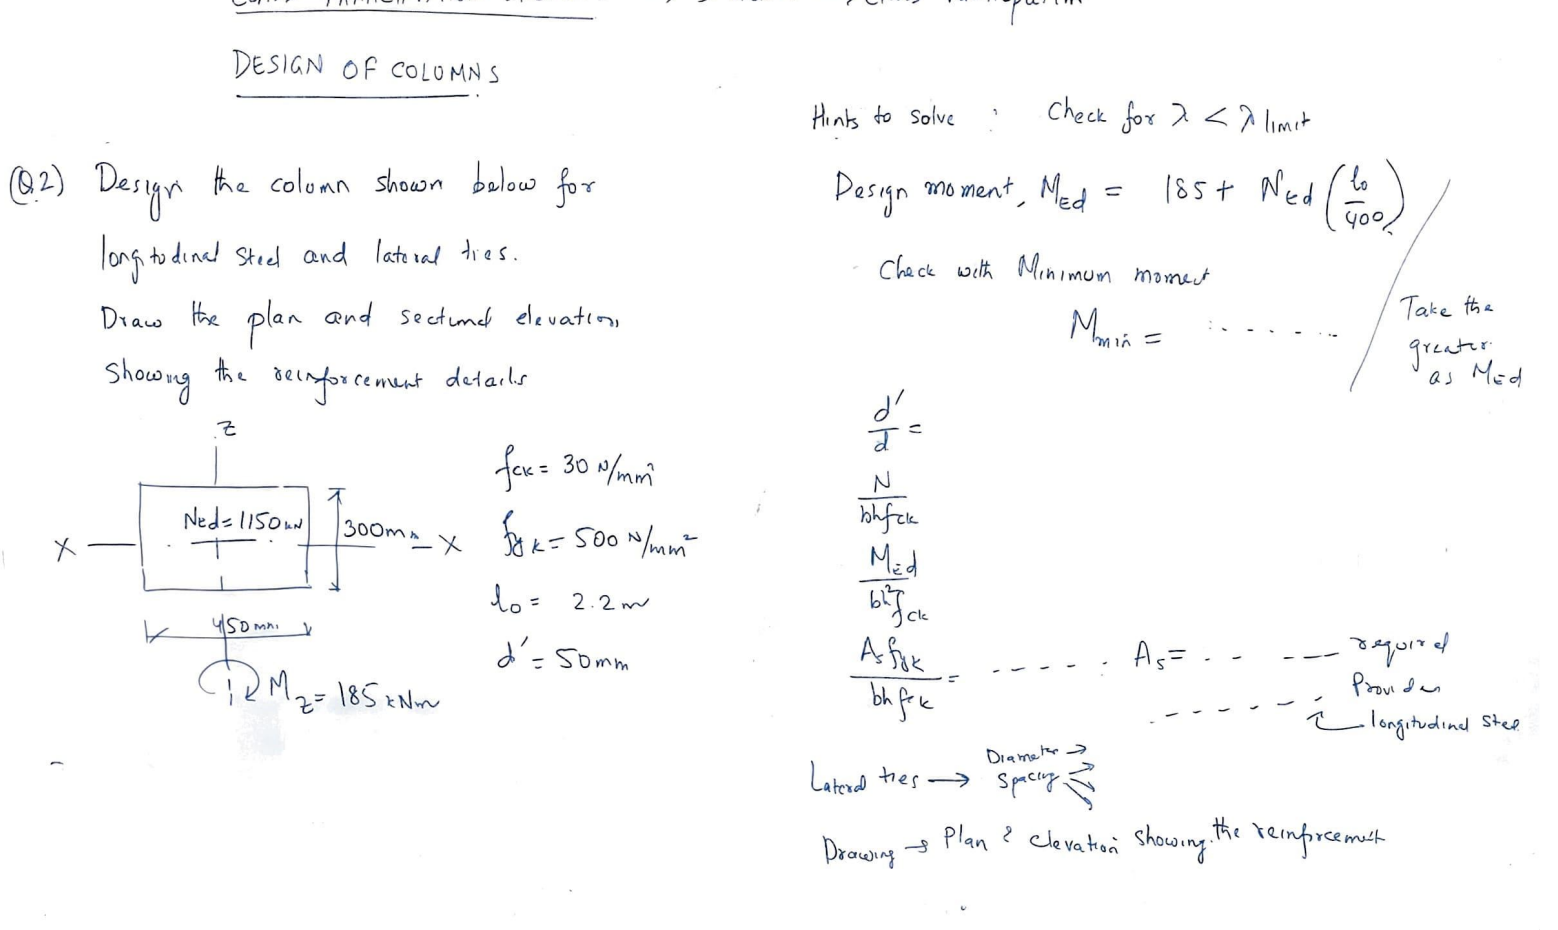 DESIGN OF COLUMNS
(Q.2) Design the column shown below for
longitudinal steel and lateral ties.
Draw the plan and sectional elevation
Showing the reinforcement details
Z
Ned = 1150 kN
300mm
X
X
450 mm
Mz = 185 kNm
fck = 30 N/mm²
fyk = 500 N/mm²
lo = 2.2 m
d' = 50mm
Hints to solve : Check for λ < λ limit
Design moment, MEd = 185 + NEd (lo/400)
Check with Minimum moment
Mmin = ........
Take the
greater
as MEd
d'/d =
N/bhfck
MEd/bh²fck
As fyk/bhfck = ----- . As = . - - -- required
Provides
. - - - - - -
longitudinal steel
Lateral ties → Diameter →
Spacing
Drawing → Plan & elevation showing the reinforcement